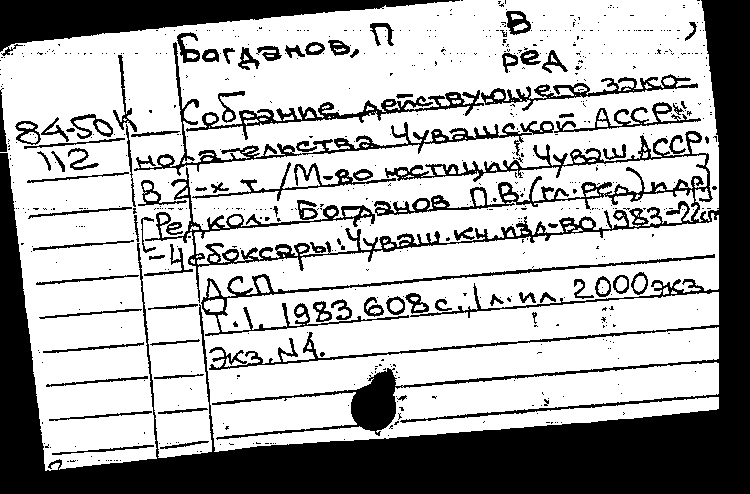 Богданов, П В ,
ред
84-50к Собрание действующего зако-
112 нодательства Чувашской АССР:
В 2-х т. /М-во юстиции Чуваш.АССР.
[Редкол.: Богданов П.В.(гл.ред) и др].
-Чебоксары: Чуваш.кн.изд-во, 1983.-22см
ДСП.
Т.1. 1983. 608 с.; 1 л. ил. 2000 экз.
Экз. N4.